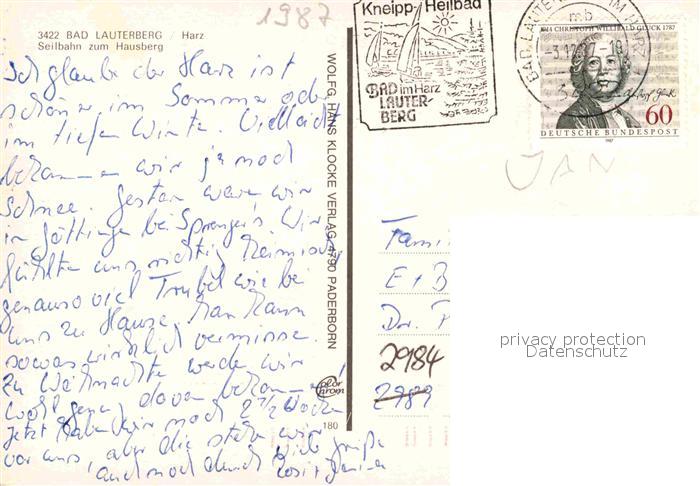 1987
3422 BAD LAUTERBERG / Harz
Seilbahn zum Hausberg
Ich glaube der Harz ist
schöner im Sommer oder
im tiefen Winter. Vielleicht
bekommen wir ja noch
Schnee. Gestern waren wir
in Göttingen bei Sprengers. Wir
fühlten uns richtig heimisch
genauso viel Trubel wie bei
uns zu Hause. Man kann
sowas wirklich vermissen.
Zu Weihnachten werden wir
wohl genug davon bekommen!
Jetzt haben wir noch 2 1/2 Wochen
vor uns, aber die stehen wir
auch noch durch. Viele Grüße
WOLFG. HANS KLOCKE VERLAG, 4790 PADERBORN
Color Chrom
180
Kneipp-Heilbad
BAD im Harz
LAUTER-
BERG
BAD LAUTERBERG IM HARZ
mb
1714 CHRISTOPH WILLIBALD GLUCK 1787
60
DEUTSCHE BUNDESPOST
1987
JAN
Fami
E + B
Dr. P
2984
2989
privacy protection
Datenschutz